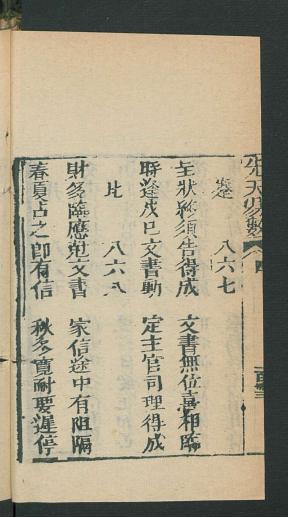 先天易數 卷四
蹇 八六七
呈狀總須告得成 文書無位喜相臨
時逢戊巳文書動 定主官司理得成
比 八六八
財多臨應剋文書 家信途中有阻隔
春夏占之即有信 秋冬寬耐要遲停